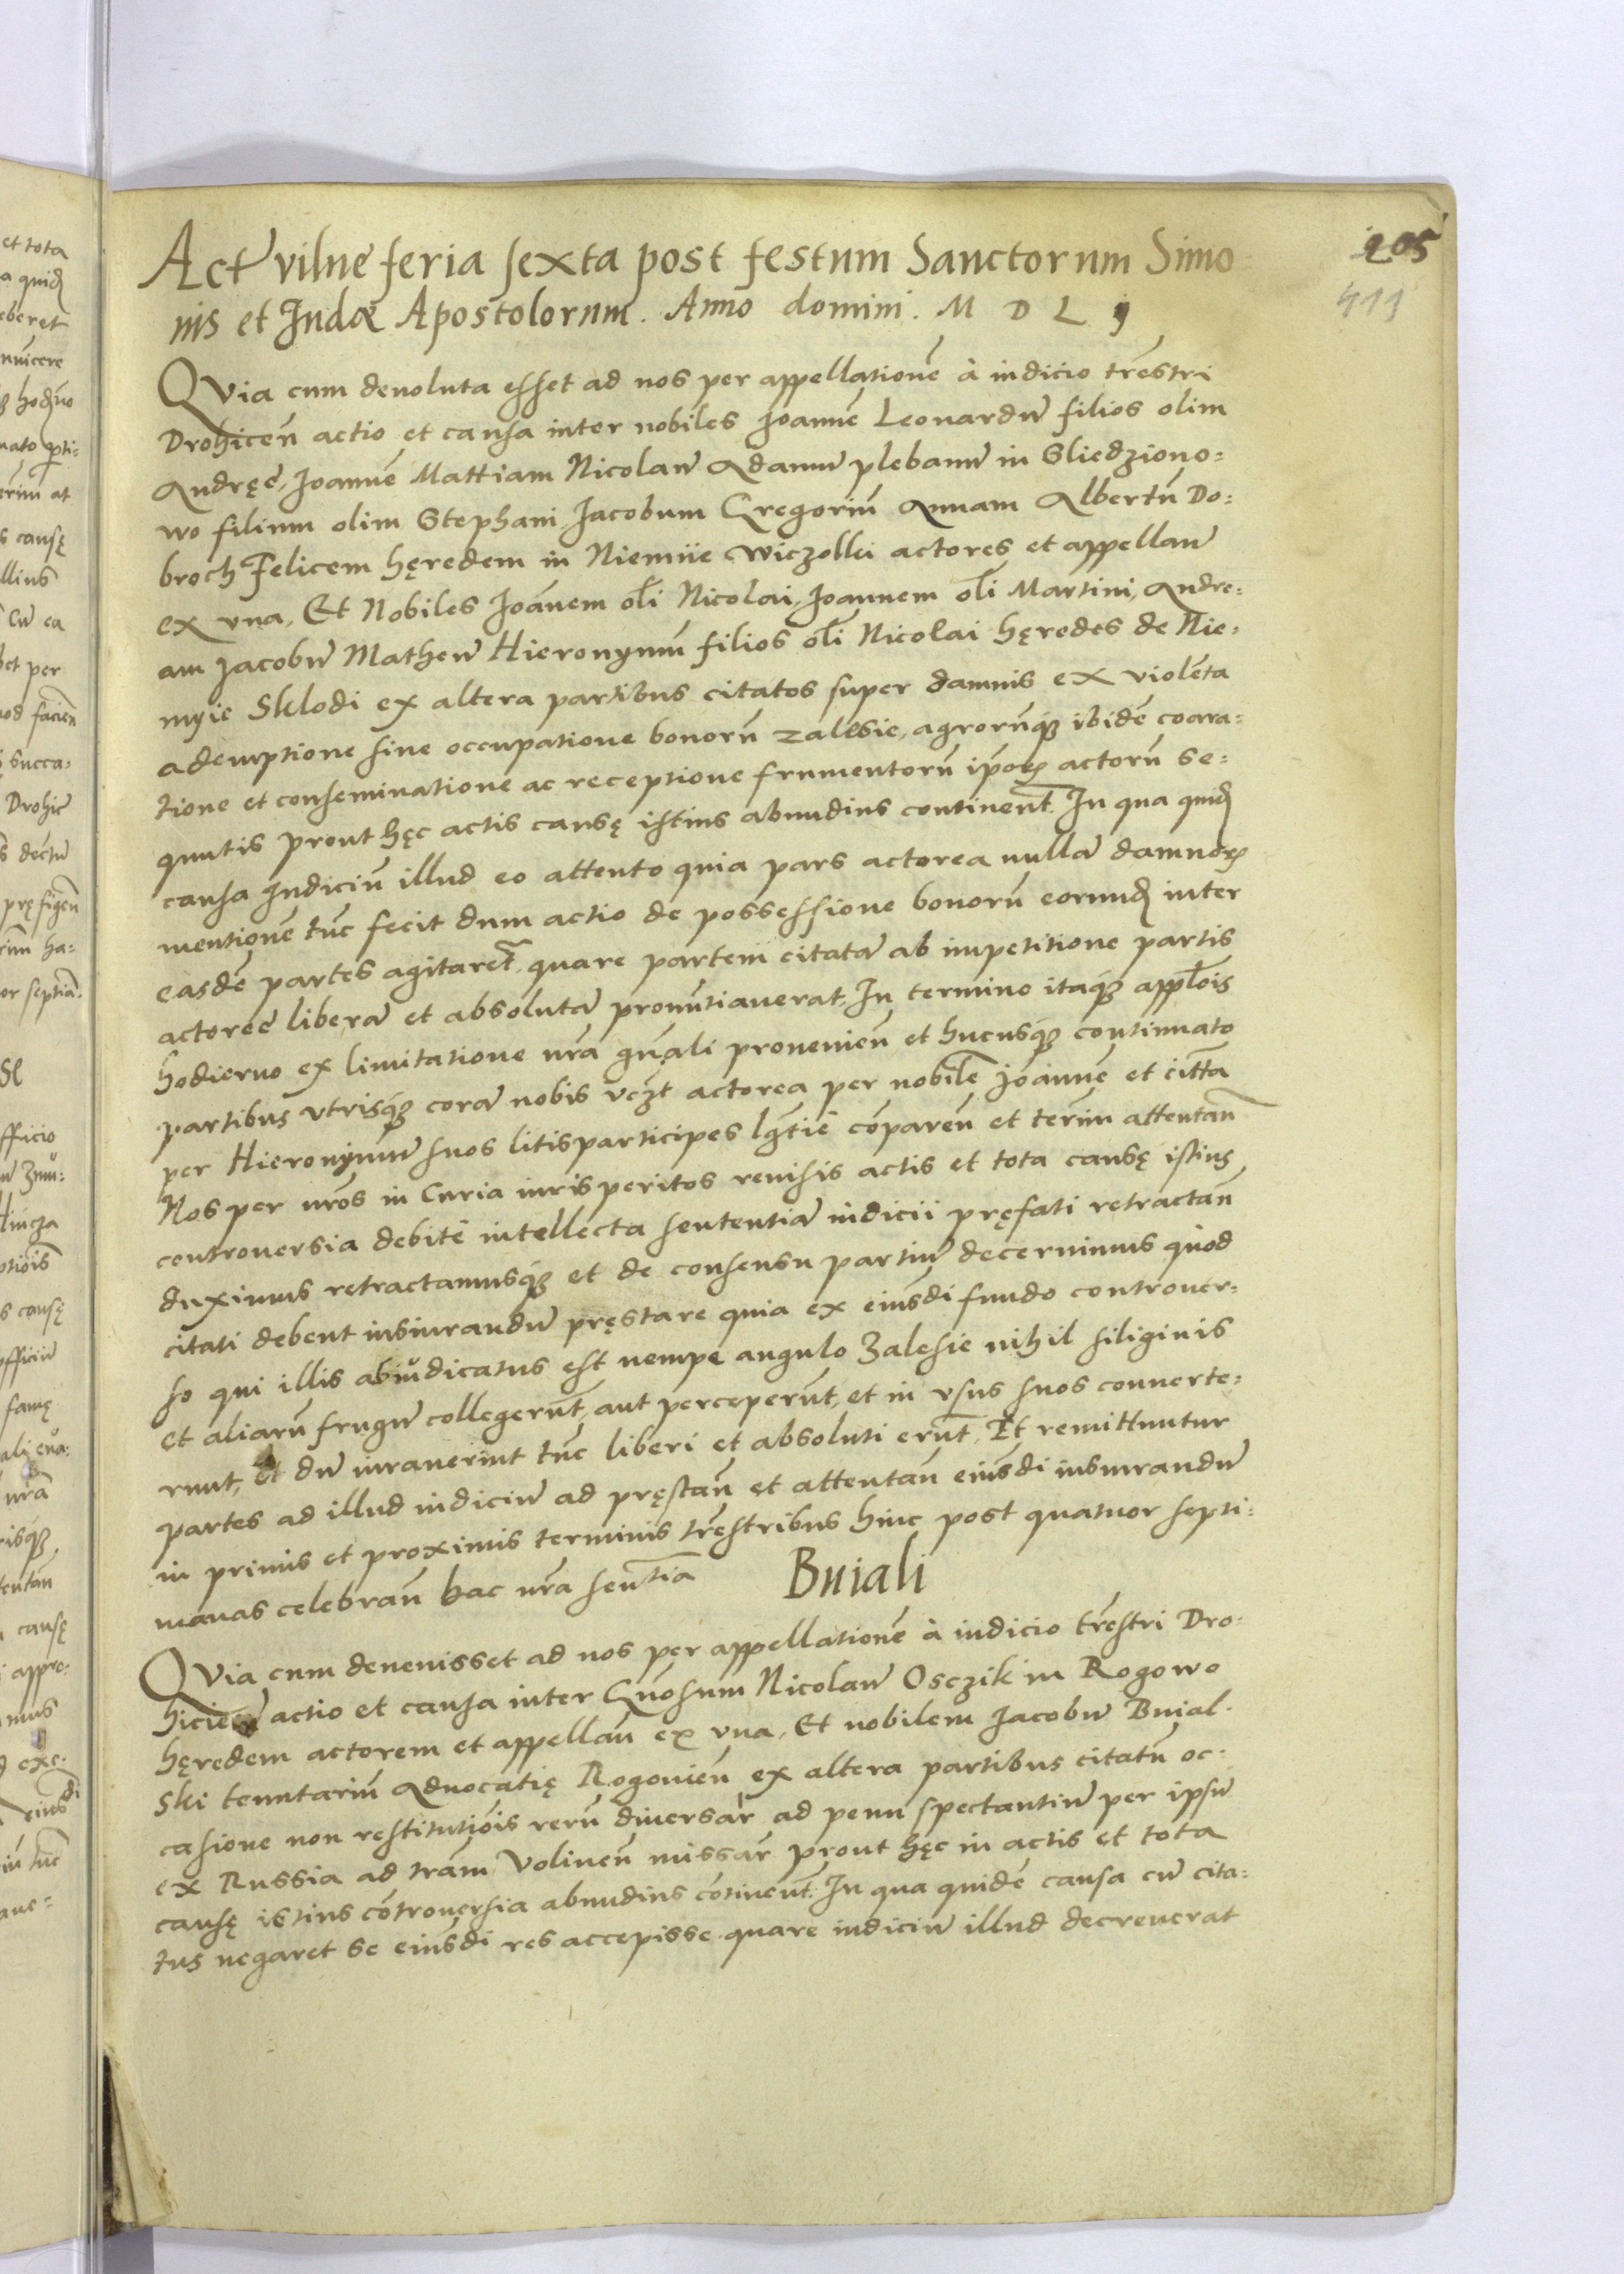 205
411
Actū vilne feria sexta post festum Sanctorum Simo-
nis et Iudæ Apostolorum. Anno domini. M D L ij
QVia cum deuoluta esset ad nos per appellationē à iudicio trēstri
Drohicen̄ actio et causa inter nobiles Joannē Leonardū filios olim
Andręę, Joannē Mattiam Nicolaū Adamū plebanū in Sliedziono=
wo filium olim Stephani Jacobum Gregoriū Annam Albertū Do=
broch Felicem hęredem in Niemiie Wiczolki actores et appellan̄
ex vna, Et Nobiles Joānem oli Nicolai, Joannem oli Martini, Andre=
am Jacobū Matheū Hieronymū filios oli Nicolai hęredes de Nie=
myie Sklodi ex altera partibus citatos super damnis ex violēta
ademptione siue occupatione bonorū zalesie, agrorūq; ibidē coara=
tione et conseminatione ac receptione frumentorū ipoꝝ actorū se=
quutis prout hęc actis causę istius abundius continent̄. In qua quid̄
causa Iudiciū illud eo attento quia pars actorea nullā damnoꝝ
mentionē tūc fecit dum actio de possessione bonorū eorund̄ inter
easdē partes agitaret̄, quare partem citatā ab impetitione partis
actoreę liberā et absolutā pronūtiauerat, In termino itaq; applōis
hodierno ex limitatione nrā gn̄ali prouenien̄ et hucusq; continuato
partibus vtrisq; corā nobis vczt actorea per nobilē Joannē et citta
per Hieronymū suos litisparticipes lgtiē cōparen̄ et termi attentan̄
Nos per nrōs in Curia iurisperitos reuisis actis et tota causę istius
controuersia debitè intellecta sententiā iudicii pręfati retractan̄
duximus retractamusq; et de consensu partiū decernimus quod
citati debent iusiurandū pręstare quia ex eiusdi fundo controuer=
so qui illis abiudicatus est nempe angulo Zalesie nihil siliginis
et aliarū frugū collegerūt, aut perceperūt, et in vsus suos conuerte=
runt, et dū iurauerint tūc liberi et absoluti erūt, Et remittuntur
partes ad illud iudiciū ad pręstan̄ et attentan̄ eiusdi iusiurandū
in primis et proximis terminis trēstribus hinc post quatuor septi=
manas celebran̄ hac nrā sentia
Buiali
QVia cum deuenisset ad nos per appellationē à iudicio trēstri Dro=
hicien̄ actio et causa inter Gnōsum Nicolaū Osczik in Rogowo
hęredem actorem et appellan̄ ex vna, Et nobilem Jacobū Buial=
ski tenutariū Aduocatię Rogouien̄ ex altera partibus citatū oc=
casione non restitutiōis rerū diuersar̄ ad penu spectantiū per ipsū
ex Russia ad trām Volinen̄ missar̄ prout hęc in actis et tota
causę istius cōtrouersia abundius cōtinent̄. In qua quidē causa cū cita=
tus negaret se eiusdi res accepisse quare iudiciū illud decreuerat